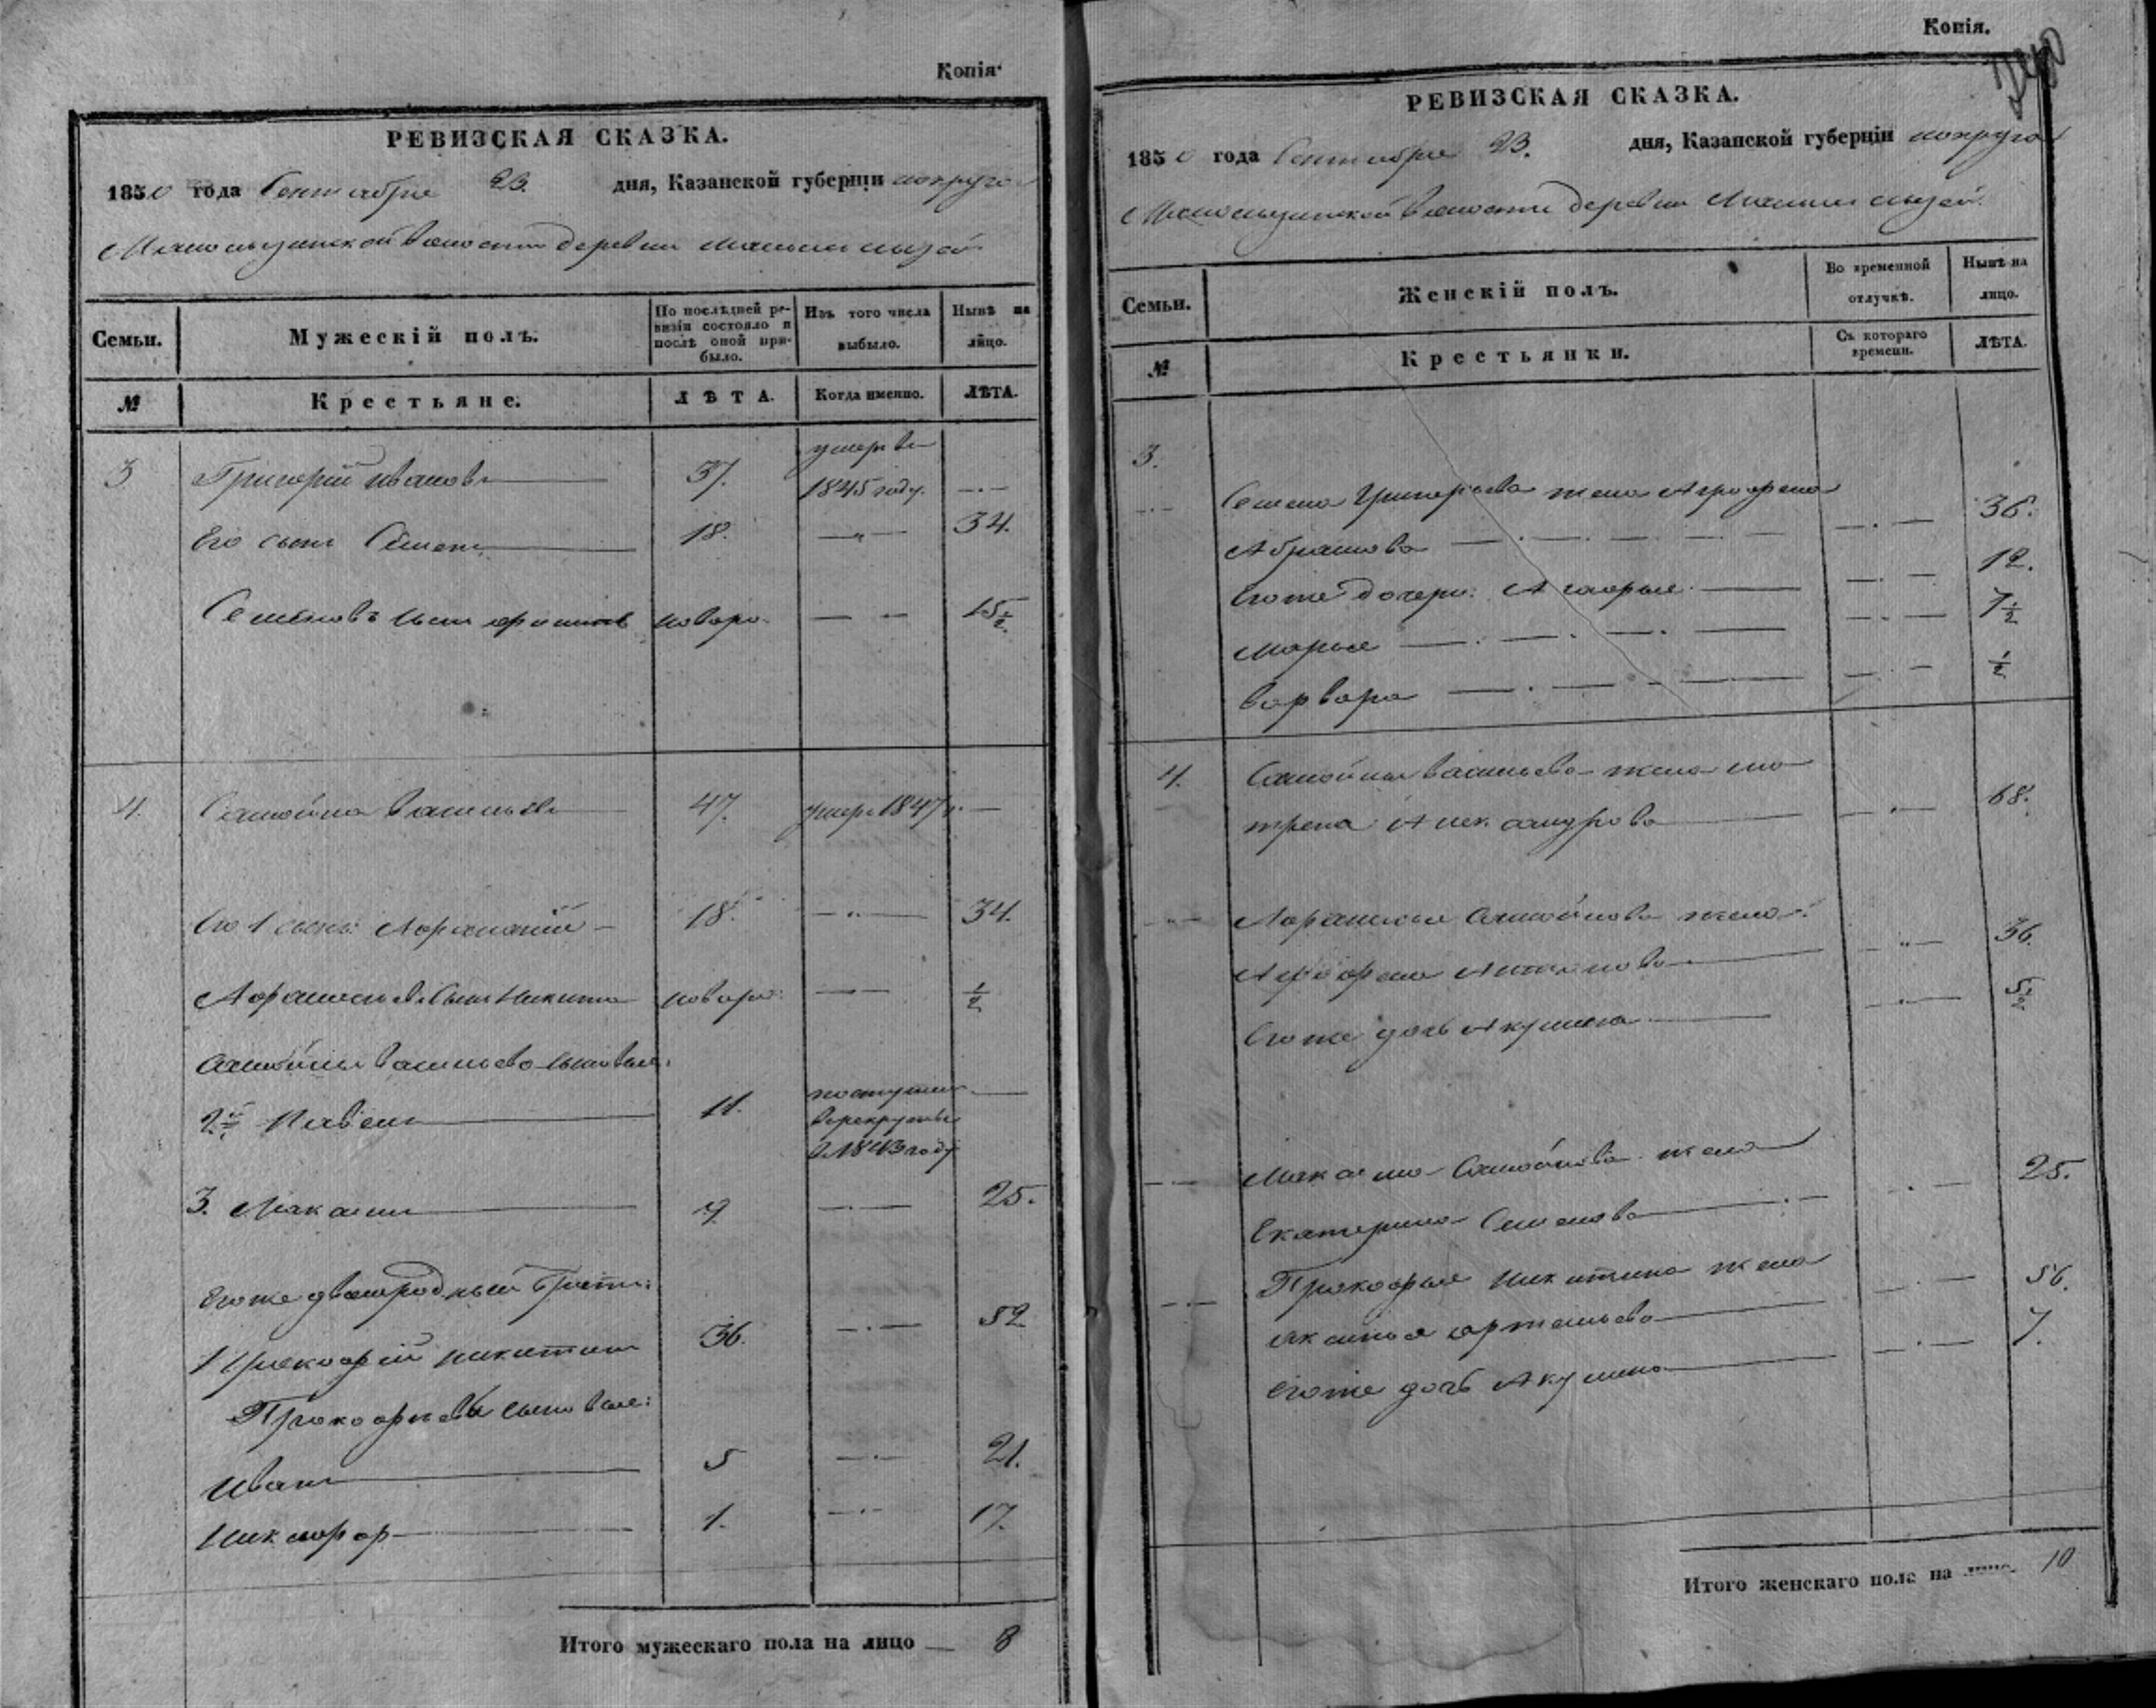 Копія.
РЕВИЗСКАЯ СКАЗКА.
1850 года Сентября 23. дня, Казанской губерніи
волости деревни
Семьи.
Мужескій полъ.
По послѣдней ре-
визіи состояло и
послѣ оной при-
было.
Изъ того числа
выбыло.
Нынѣ на
лицо.
№
Крестьяне.
ЛѢТА.
Когда именно.
ЛѢТА.
умеръ въ
3 Григорій Ивановъ 37. 1845 году.
Его сынъ Семенъ 18. 34.
Семеновъ сынъ новоро. 15 1/2
4. Самойла Васильевъ 47. умеръ 1847 г.
Его 1 сынъ Афанасій 18. 34.
Афанасьевъ сынъ Никита новоро. 1/2
Самойлы Васильева сыновья:
2й Павелъ 11. поступилъ
въ рекруты
въ 1843 году
3. Максимъ 9. 25.
Его же двоюродный братъ:
Прокофій Никитинъ 36. 52
Прокофьевы сыновья:
Иванъ 5 21.
Никифоръ 1. 17.
Итого мужескаго пола на лицо 8
Копія.
РЕВИЗСКАЯ СКАЗКА.
1850 года Сентября 23. дня, Казанской губерніи
волости деревни
Семьи.
Женскій полъ.
Во временной
отлучкѣ.
Нынѣ на
лицо.
№
Крестьянки.
Съ котораго
времени.
ЛѢТА.
3.
Семена Григорьева жена Агрофена
Абрамова 36.
Его же дочери: 12.
Марья 7 1/2
Варвара 1/2
4. Самойлы Васильева жена Ма
трена Александрова 68.
Афанасья Самойлова жена
Агрофена 36.
Его же дочь Акулина 5 1/2
Максима Самойлова жена
Екатерина Семенова 25.
Прокофья Никитина жена
Аксинья Артемьева 56.
Его же дочь Акулина 7.
Итого женскаго пола на лицо 10